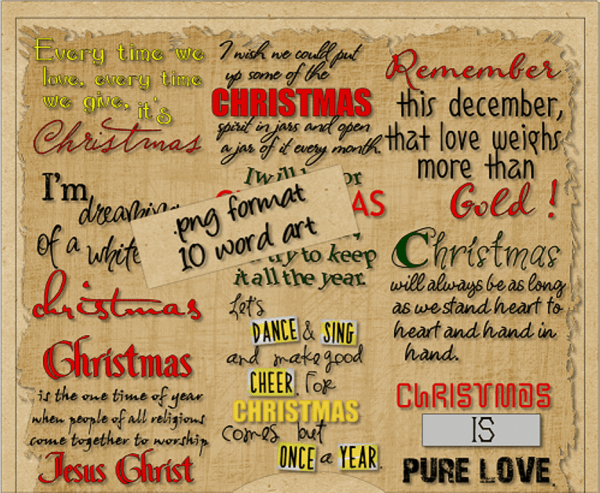 Every time we
love, every time
we give, it's
Christmas
I'm
dreaming
of a white
christmas
Christmas
is the one time of year
when people of all religions
come together to worship
Jesus Christ
I wish we could put
up some of the
CHRISTMAS
spirit in jars and open
a jar of it every month.
I will
.png format
10 word art
try to keep
it all the year.
Let's
DANCE & SING
and make good
CHEER. For
CHRISTMAS
comes but
ONCE a YEAR.
Remember
this december,
that love weighs
more than
Gold !
Christmas
will always be as long
as we stand heart to
heart and hand in
hand.
CHRISTMAS
IS
PURE LOVE.